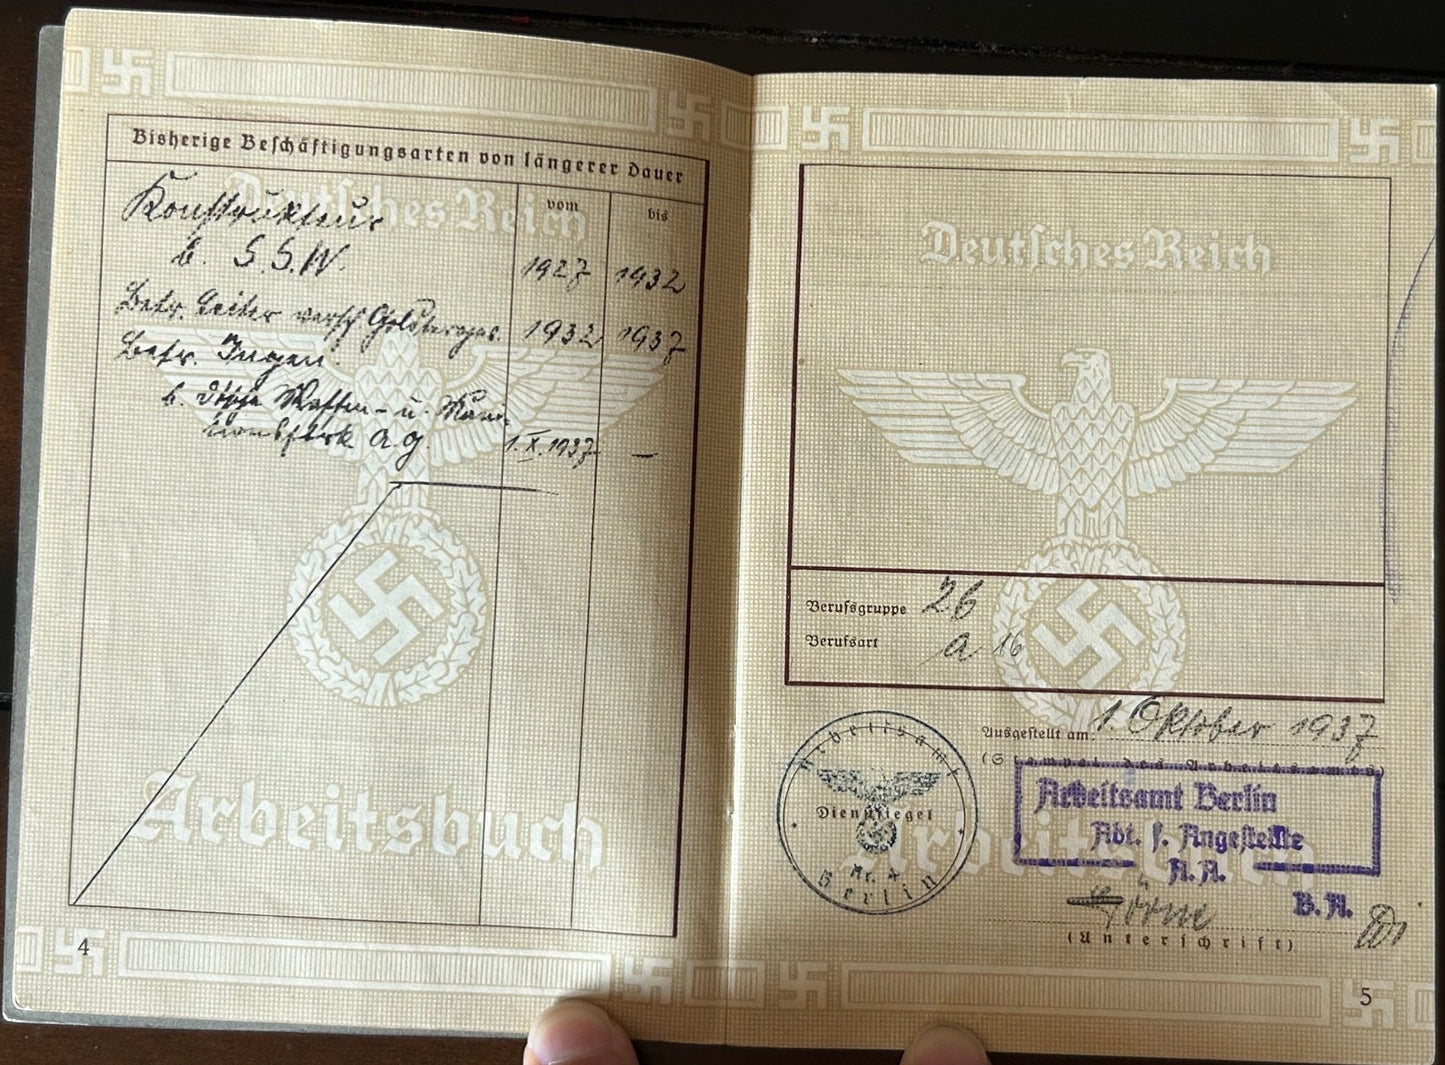 Bisherige Beschäftigungsarten von längerer Dauer
vom bis
Deutsches Reich
Konstrukteur
b. S.S.W. 1927 1932
Betr. Leiter versch. 1932 1937
Betr. Ingen.
b. Waffen- u. Muni-
A.G. 1.X.1937 —
Arbeitsbuch
4
Deutsches Reich
Berufsgruppe 26
Berufsart a 16
Ausgestellt am 1. Oktober 1937
(Stempel des Arbeitsamts)
Arbeitsamt
Dienstsiegel
Nr. 4
Berlin
Arbeitsamt Berlin
Abt. f. Angestellte
A.A.
B.A.
Arbeitsbuch
(Unterschrift)
5